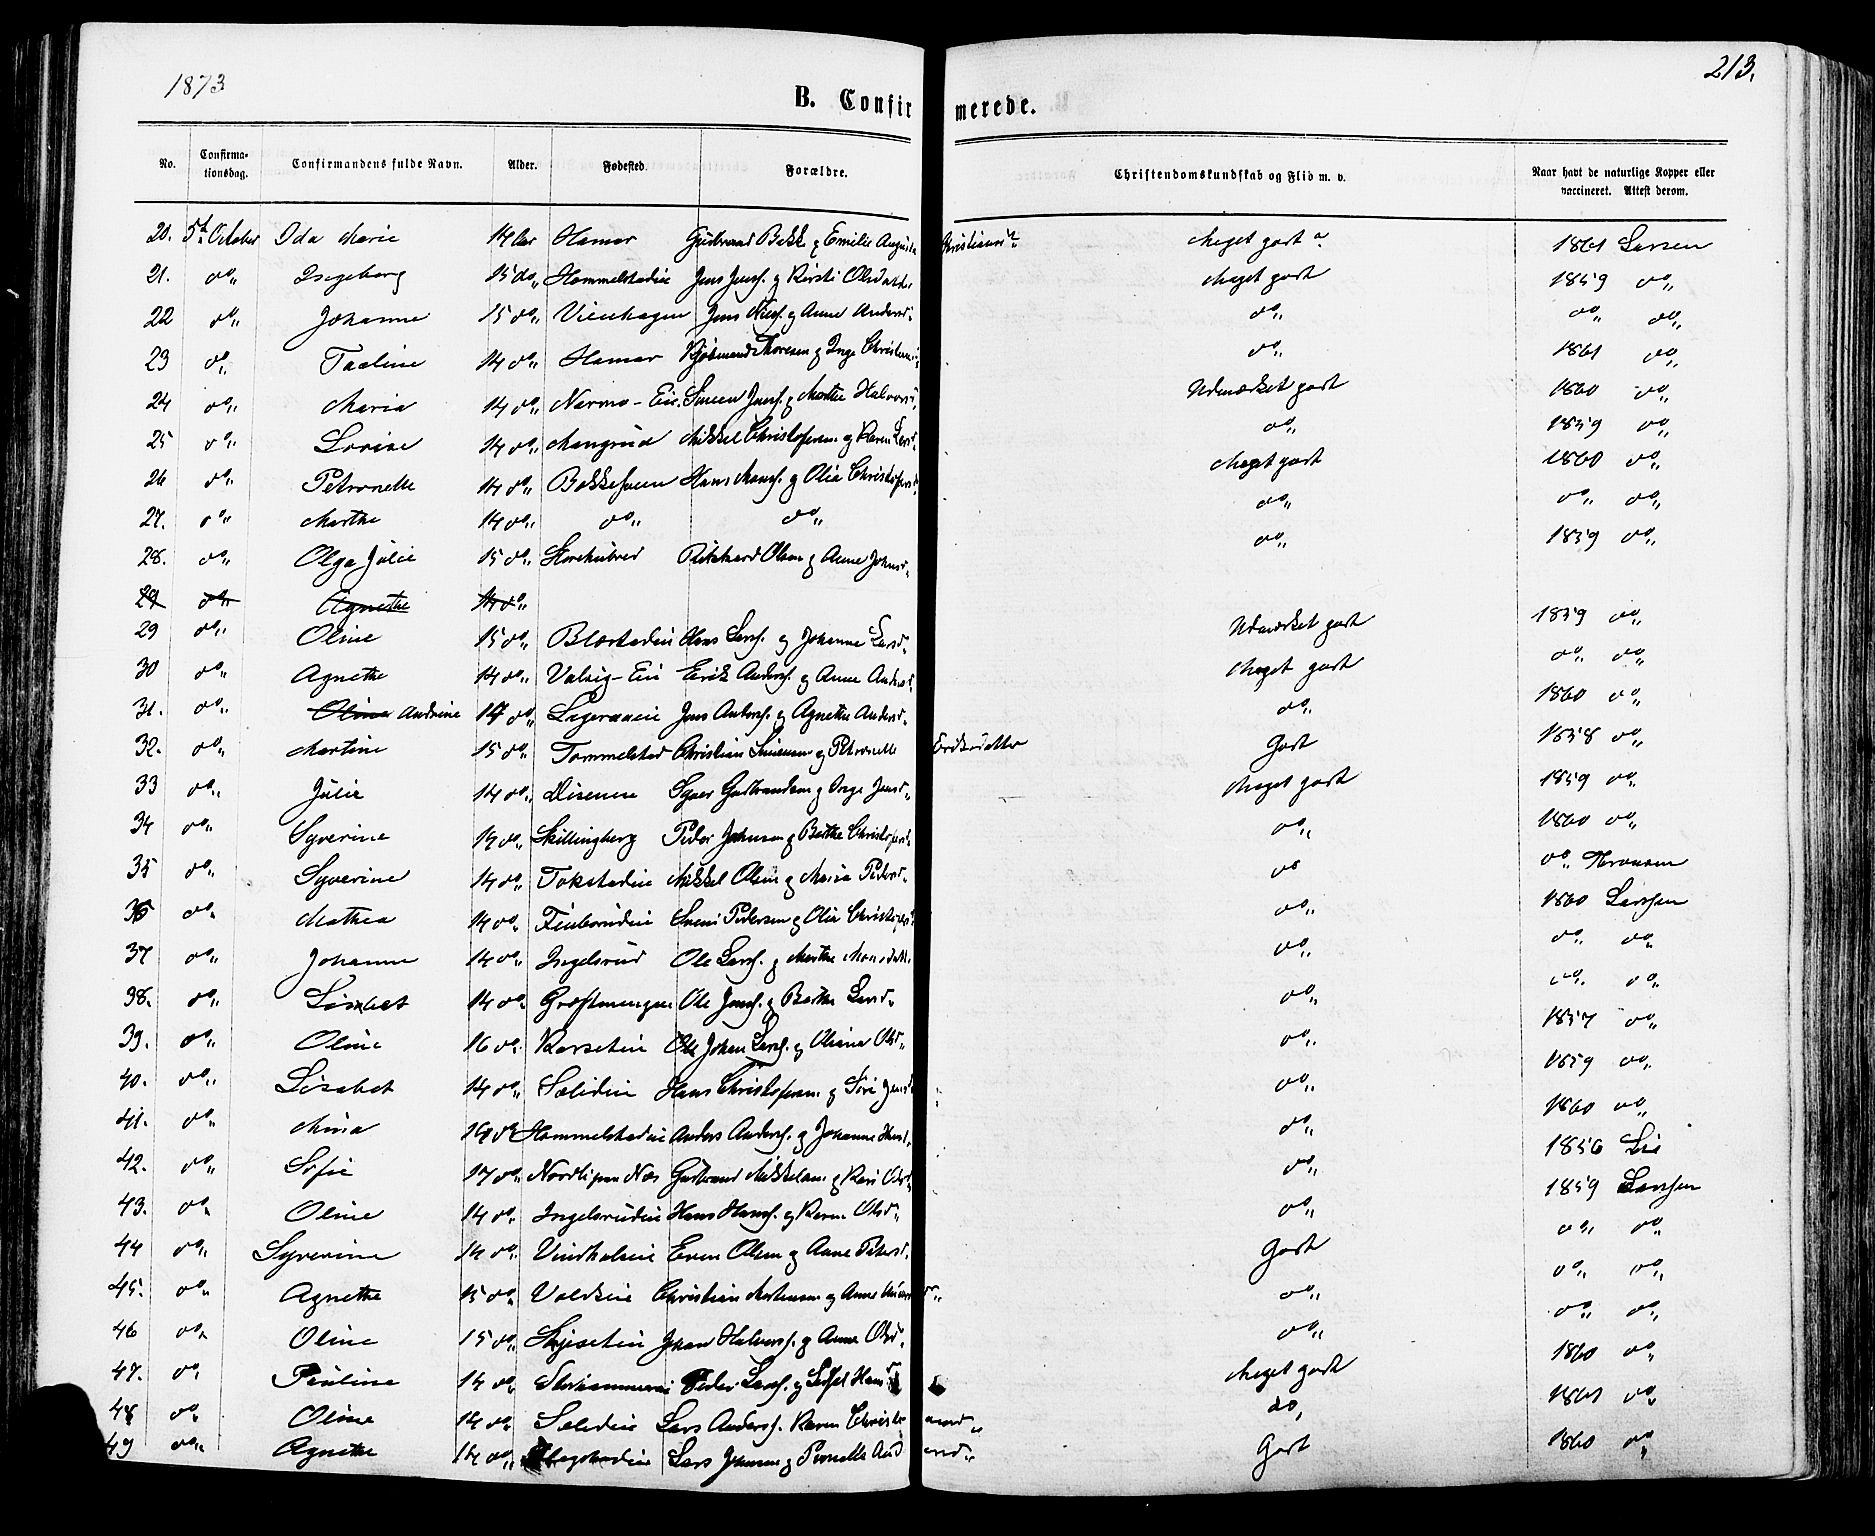 1873
213.
B. Confirmerede.
No. Confirmationsdag. Confirmandens fulde Navn. Alder. Fødested. Forældre. Christendomskundskab og Flid m. v. Naar havt de naturlige Kopper eller vaccineret. Attest derom.
20. 5te October Ida Marie 14 Aar Hamar Gudbrand Bekk og Emilie Augusta Meget godt 1861 Larsen
21. do„ Ingeborg 15 do„ Hommelstadeie Jens Jensf. og Kirsti Olsdatter Meget godt 1859 do„
22 do„ Johanne 15 do„ Vienhagen Jens og Anne Andersd„ do„ do„ do„
23 do„ Pauline 14 do„ Hamar Thoresen og Inge do„ 1861 do„
24 do„ Maria 14 do„ Narmo-Eie Simen Jensf. og Marthe Halvorsd. Udmærket godt 1860 do„
25 do„ Lovise 14 do„ Mangrud Mikkel Christofersen og Karen Larsd„ do„ 1859 do„
26 do„ Petronelle 14 do„ Hans Hansf. og Olia Christofersd. Meget godt 1860 do„
27. do„ Marthe 14 do„ do„ do„ do„ do„ do„
28. do„ Olga Julie 15 do„ Rikkard Olsen og Anne Johnsd„ do„ 1859 do„
29 do„ Agnethe 14 do„
29 do„ Oline 15 do„ Hans Larsf. og Johanne Larsd„ Udmærket godt 1859 do„
30 do„ Agnethe 14 do„ Valsig-Eie Erik Andersf. og Anne Andersd. Meget godt do„ do„
31. do„ Oline Andrine 14 do„ Jens Andersf. og Agnethe Andersd„ do„ 1860 do„
32. do„ Martine 15 do„ Tommelstad Christian Simensen og Petronelle Eriksdatter Godt 1858 do„
33 do„ Julie 14 do„ Disenese Syver Gudbrandsen og Inge Jensd„ Meget godt 1859 do„
34 do„ Syverine 14 do„ Skillingberg Peder Johnsen og Berthe Christofersd. do„ 1860 do„
35 do„ Syverine 14 do„ Tokstadeie Mikkel Olsen og Maria Pedersd„ do do„ Thronsen
36 do„ Mathea 14 do„ Finborudeie Svend Pedersen og Olia Christofersd. do„ 1860 Larssen
37 do„ Johanne 14 do„ Ingelsrud Ole Larsf. og Marthe Monsdatt. do„ do„ do„
38. do„ Lisabet 14 do„ Ole Jensf. og Berthe Larsd„ do„ do„ do„
39. do„ Oline 16 do„ Karseteie Ole Johan Larsf. og Oliana Olsd„ do„ 1857 do„
40. do„ Lisabet 14 do„ Sælideie Hans Christofersen og Siri Jensd. do„ 1859 do„
41. do„ Mina 14 do Hommelstadeie Anders Andersf. og Johanne Hansd. do„ 1860 do„
42. do„ Sofie 17 do„ Nordli paa Næs Gudbrand Mikkelsen og Kari Olsd. do„ 1856 Lie
43. do„ Oline 14 do„ Ingelsrudeie Hans Hansf. og Karen Olsd„ do„ 1859 Larssen
44 do„ Syverine 14 do„ Vindhalseie Even Olsen og Anne Pedersd. Godt do„ do„
45. do„ Agnethe 15 do„ Voldseie Christian Mortensen og Anne do„ do„ do„
46 do„ Oline 15 do„ Skjeseteie Johan Halvorsf. og Anne Olsd. do„ do„ do„
47. do Pauline 14 do„ Peder Larsf. og Meget godt 1860 do„
48 do„ Oline 14 do„ Sælideie Lars Andersf. Karen do, 1861 do„
49 do„ Agnethe 14 do„ Lars Johnsen og Pernelle Godt 1860 do„